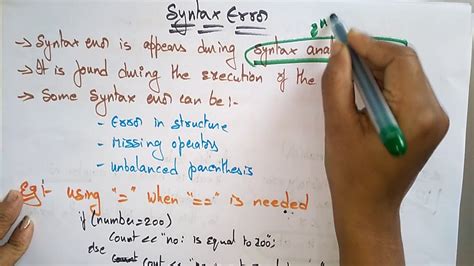 Syntax Error
→ Syntax error is appears during syntax ana
→ It is found during the execution of the
→ Some syntax error can be :-
- Error in structure
- Missing operators
- unbalanced parenthesis
Eg:- using "=" when "==" is needed
if (number=200)
count << "no: is equal to 200";
else